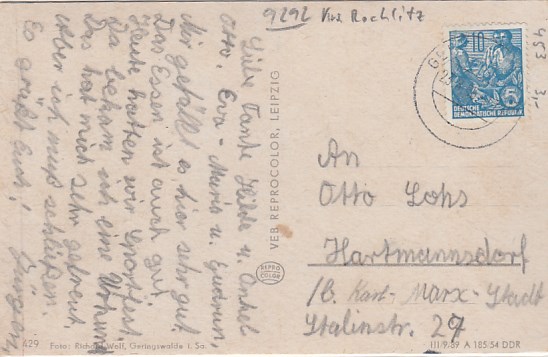 9292 Krs. Rochlitz
453
Liebe Tante Hilde u. Onkel
Otto, Eva-Maria u. Gudrun,
Mir gefällt es hier sehr gut
Das Essen ist auch gut
Heute hatten wir Sportfest.
Da bekam ich eine Urkunde
Das hat mich sehr gefreut.
Aber ich muß schließen.
Es grüßt Euch! Jürgen
VEB REPROCOLOR, LEIPZIG
REPRO
COLOR
10
5
DEUTSCHE
DEMOKRATISCHE REPUBLIK
An
Otto Lohs
Hartmannsdorf
/b. Karl-Marx-Stadt
Stalinstr. 27
429 Foto: Richard Wolf, Geringswalde i. Sa.
III/9/89 A 185/54 DDR